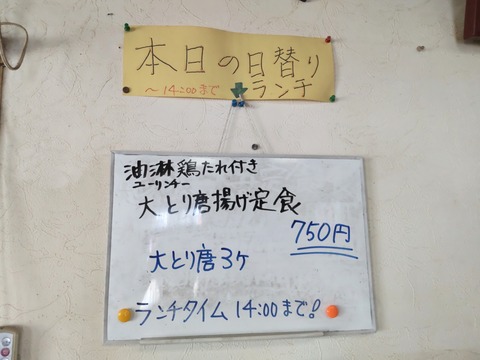 本日の日替り
～14:00まで ランチ
油淋鶏たれ付き
ユーリンチー
大とり唐揚げ定食
750円
大とり唐3ヶ
ランチタイム 14:00まで!